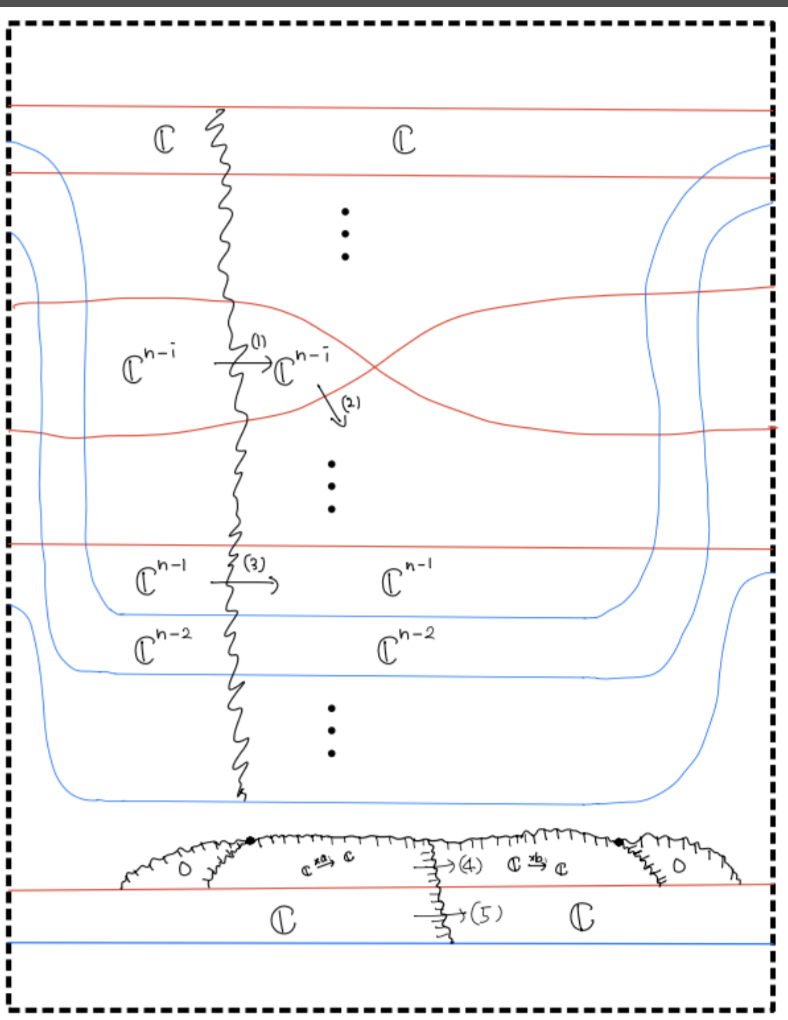 ℂ ℂ
ℂⁿ⁻ⁱ (1) ℂⁿ⁻ⁱ
(2)
ℂⁿ⁻¹ (3) ℂⁿ⁻¹
ℂⁿ⁻² ℂⁿ⁻²
0 ℂ ×a→ ℂ (4) ℂ ×b→ ℂ 0
ℂ (5) ℂ